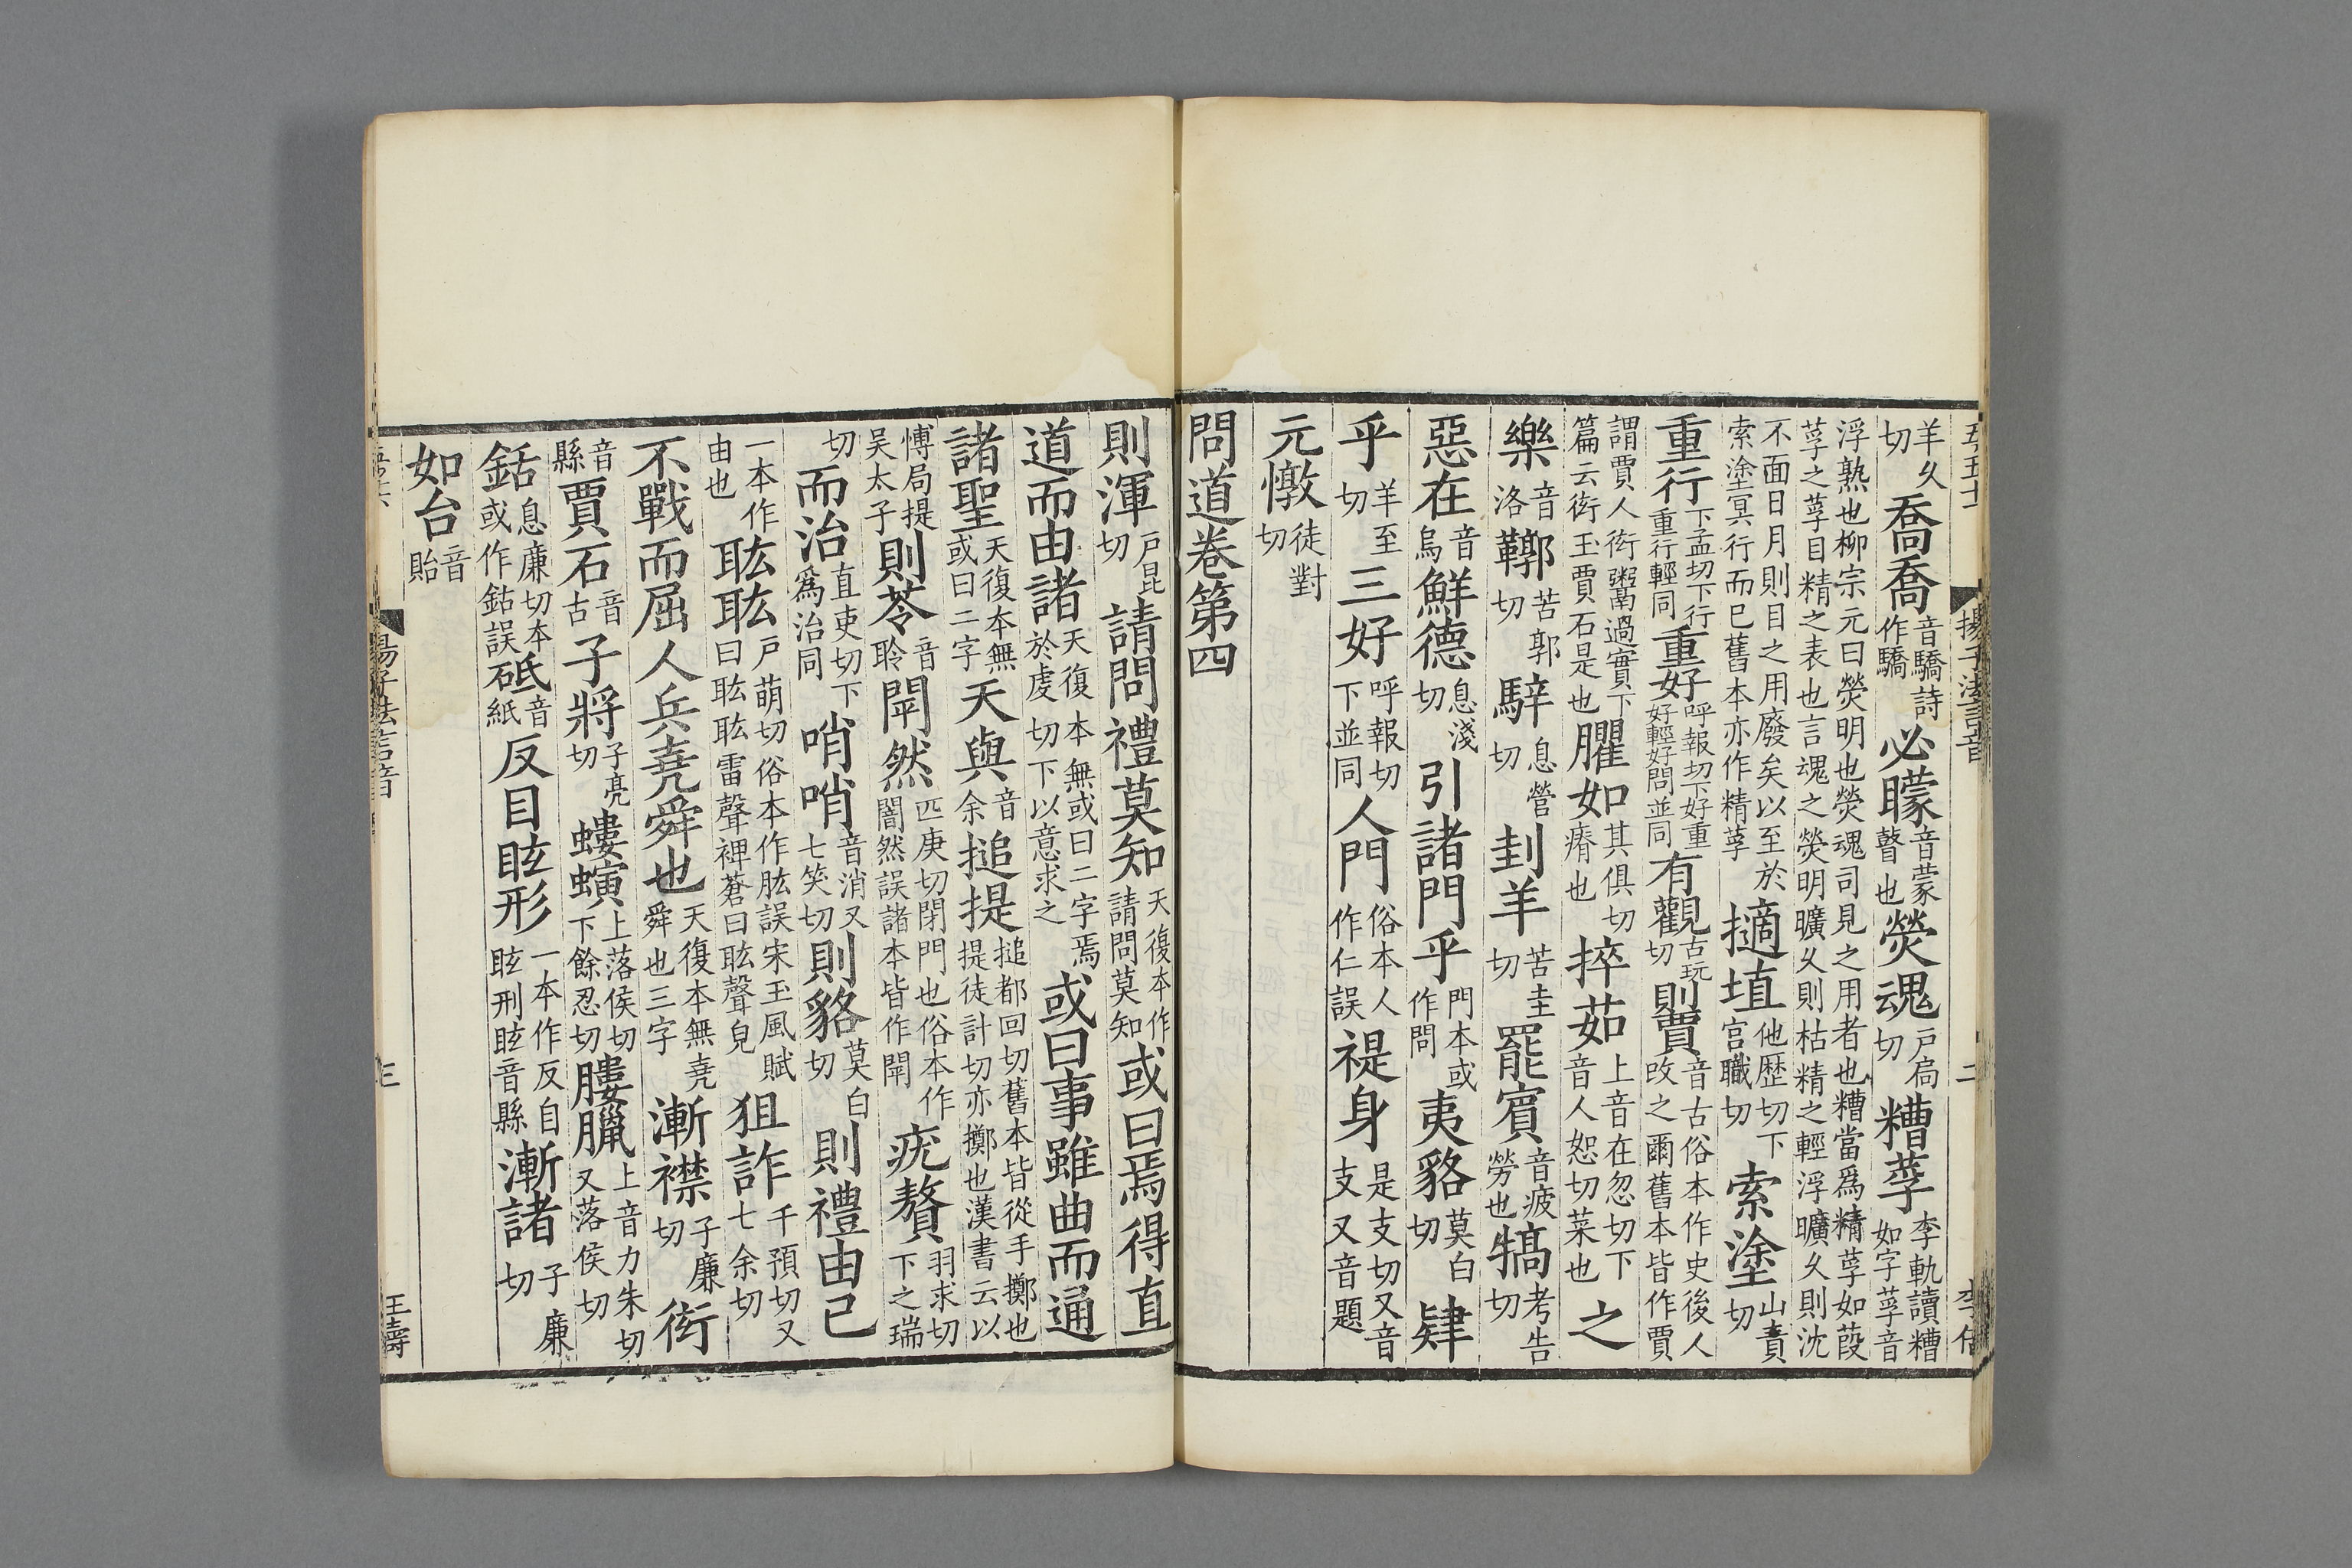 羊久切喬喬音驕詩作驕必矇音蒙瞽也熒魂戶扃切糟莩李軌讀糟如字莩音
浮熟也柳宗元曰熒明也熒魂司見之用者也糟當爲精莩如葭莩之莩目精之表也言魂之熒明曠久則枯精之輕浮曠久則沈
不面日月則目之用廢矣以至於索塗冥行而已舊本亦作精莩擿埴他歷切下宫職切索塗山責切
重行下孟切下行重行輕同重好呼報切下好重好輕好問並同有觀古玩切則賈音古俗本作史後人改之爾舊本皆作賈
謂賈人衒粥鬻過實下篇云衒玉賈石是也臞如其俱切瘠也捽茹上音在忽切下音人恕切菜也之
樂音洛鞹苦郭切騂息營切刲羊苦圭切罷賓音疲勞也犒考告切
惡在音烏鮮德息淺切引諸門乎門本或作問夷貉莫白切肄
乎羊至切三好呼報切下並同人門俗本人作仁誤禔身是支切又音支又音題
元憞徒對切
問道卷第四
則渾戶昆切請問禮莫知天復本作請問莫知或曰焉得直
道而由諸天復本無或曰二字焉於虔切下以意求之或曰事雖曲而通
諸聖天復本無或曰二字天與音余搥提搥都回切舊本皆從手擲也提徒計切亦擲也漢書云以
愽局提吴太子則苓音聆閛然匹庚切閉門也俗本作闇然誤諸本皆作閛疣贅羽求切下之瑞
切而治直吏切下爲治同哨哨音消又七笑切則貉莫白切則禮由己
一本作由也耾耾戶萌切俗本作肱誤宋玉風賦曰耾耾雷聲裨蒼曰耾聲皃狙詐千預切又七余切
不戰而屈人兵堯舜也天復本無堯舜也三字漸襟子廉切衒
音縣賈石音古子將子亮切螻螾上落侯切下餘忍切膢臘上音力朱切又落侯切
銛息廉切本或作鈷誤砥音紙反目眩形一本作反自眩刑眩音縣漸諸子廉切
如台音貽
三
王壽